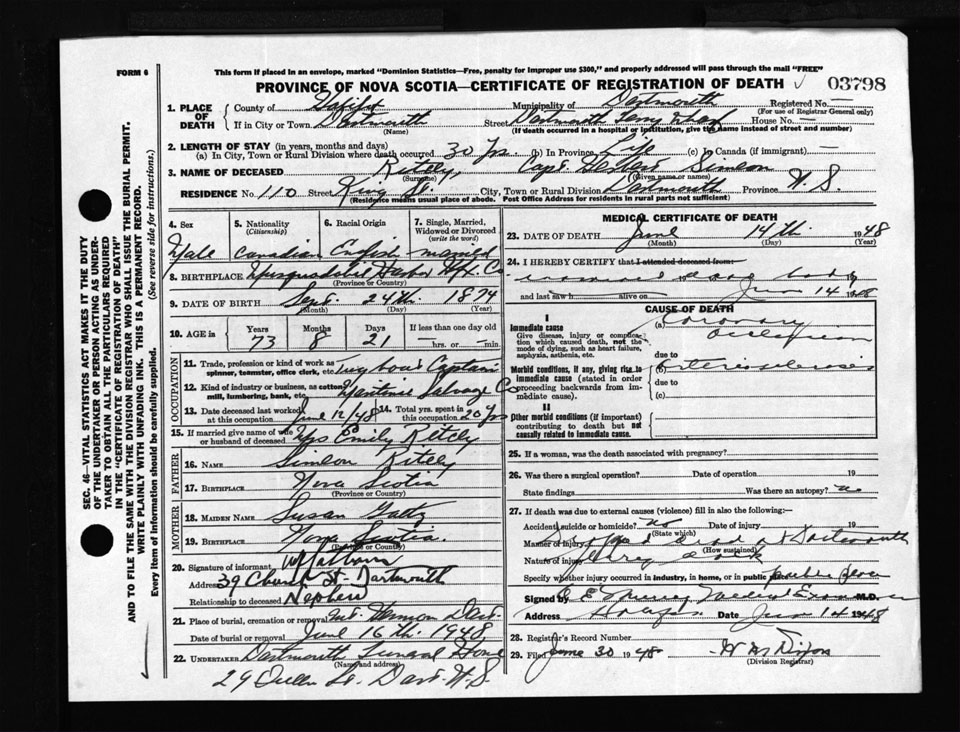 FORM 6
This form if placed in an envelope, marked "Dominion Statistics—Free, penalty for improper use $300," and properly addressed will pass through the mail "FREE"
PROVINCE OF NOVA SCOTIA—CERTIFICATE OF REGISTRATION OF DEATH
03798
1. PLACE OF DEATH
County of Halifax Municipality of Dartmouth Registered No. —
(For use of Registrar General only)
If in City or Town Dartmouth Street Dartmouth Ferry Wharf House No. —
(Name) (If death occurred in a hospital or institution, give the name instead of street and number)
2. LENGTH OF STAY (in years, months and days)
(a) In City, Town or Rural Division where death occurred 30 yrs. (b) In Province Life (c) In Canada (if immigrant) —
3. NAME OF DECEASED Ritcey, Capt. Simeon
(Surname) (Given name or names)
RESIDENCE No. 110 Street King St. City, Town or Rural Division Dartmouth Province N.S.
(Residence means usual place of abode. Post Office Address for residents in rural parts not sufficient)
4. Sex
Male
5. Nationality
(Citizenship)
Canadian
6. Racial Origin
English
7. Single, Married, Widowed or Divorced
(write the word)
married
8. BIRTHPLACE Harbor Hfx. Co
(Province or Country)
9. DATE OF BIRTH Sept. 24th. 1874
(Month) (Day) (Year)
10. AGE in
Years Months Days If less than one day old
73 8 21 —hrs. or —min.
OCCUPATION
11. Trade, profession or kind of work as spinner, teamster, office clerk, etc. Tug boat Captain
12. Kind of industry or business, as cotton mill, lumbering, bank, etc. Maritime Salvage Co
13. Date deceased last worked at this occupation June 12/48
14. Total yrs. spent in this occupation 20 yrs
15. If married give name of wife or husband of deceased Mrs Emily Ritcey
FATHER
16. NAME Simeon Ritcey
17. BIRTHPLACE Nova Scotia
(Province or Country)
MOTHER
18. MAIDEN NAME Susan
19. BIRTHPLACE Nova Scotia.
(Province or Country)
20. Signature of informant
Address 39 Church St. Dartmouth
Relationship to deceased Nephew
21. Place of burial, cremation or removal Mt. Hermon Dart.
Date of burial or removal June 16th. 1948
22. UNDERTAKER Dartmouth Funeral Home
(Name and address)
29 Queen St. Dart. N.S.
MEDICAL CERTIFICATE OF DEATH
23. DATE OF DEATH June 14th. 1948
(Month) (Day) (Year)
24. I HEREBY CERTIFY that I attended deceased from:
body
and last saw h alive on June 14 1948
CAUSE OF DEATH
I
Immediate cause
Give disease, injury or complication which caused death, not the mode of dying, such as heart failure, asphyxia, asthenia, etc.
(a) Coronary
occlusion
due to
Morbid conditions, if any, giving rise to immediate cause (stated in order proceeding backwards from immediate cause).
(b) Arteriosclerosis
due to
(c)
II
Other morbid conditions (if important) contributing to death but not causally related to immediate cause.
25. If a woman, was the death associated with pregnancy?
26. Was there a surgical operation? Date of operation 19
State findings Was there an autopsy? no
27. If death was due to external causes (violence) fill in also the following:—
Accident, suicide or homicide? no Date of injury 19
(State which)
Manner of injury dead at Dartmouth
(How sustained)
Nature of injury
Specify whether injury occurred in industry, in home, or in public place public place
Signed by Medical Examiner M.D.
Address Halifax Date June 14 1948
28. Registrar's Record Number
29. Filed June 30 1948
(Division Registrar)
SEC. 46—VITAL STATISTICS ACT MAKES IT THE DUTY OF THE UNDERTAKER OR PERSON ACTING AS UNDERTAKER TO OBTAIN ALL THE PARTICULARS REQUIRED IN THE "CERTIFICATE OF REGISTRATION OF DEATH"
AND TO FILE THE SAME WITH THE DIVISION REGISTRAR WHO SHALL ISSUE THE BURIAL PERMIT.
WRITE PLAINLY WITH UNFADING INK. THIS IS A PERMANENT RECORD.
Every item of information should be carefully supplied. (See reverse side for instructions.)